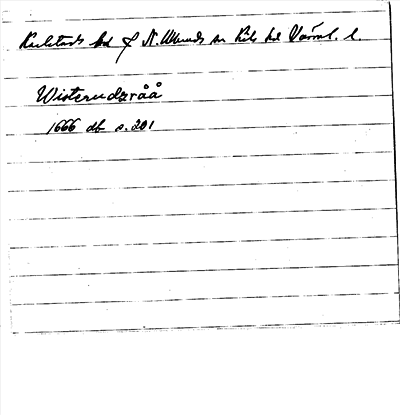 Karlstads hd f N. Ullereds sn Kils hd Värml. l.
Wisterudzråå
1666 db s. 201